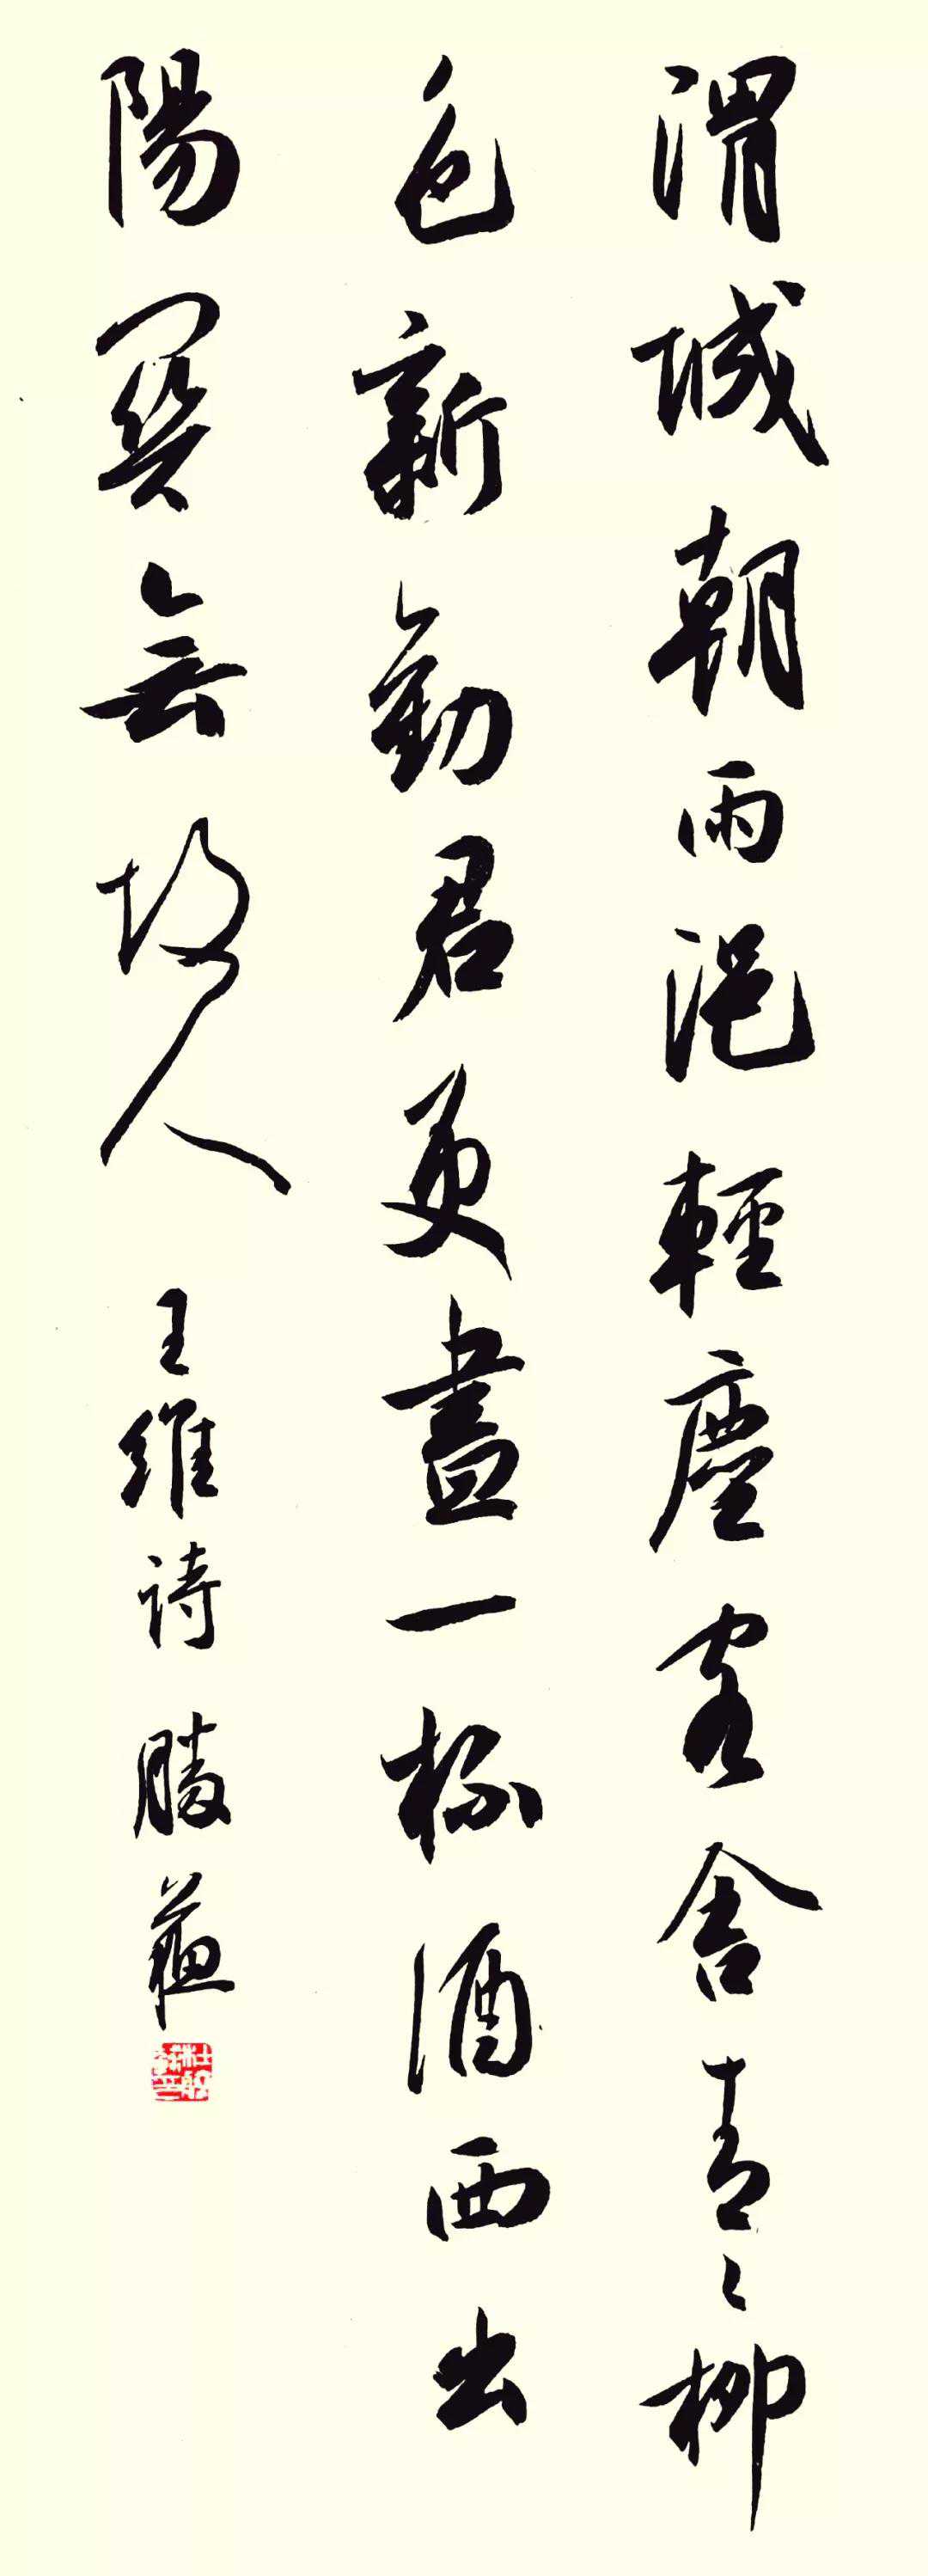 渭城朝雨浥輕塵客舍青々柳
色新勸君更盡一杯酒西出
陽關無故人 王維詩 勝